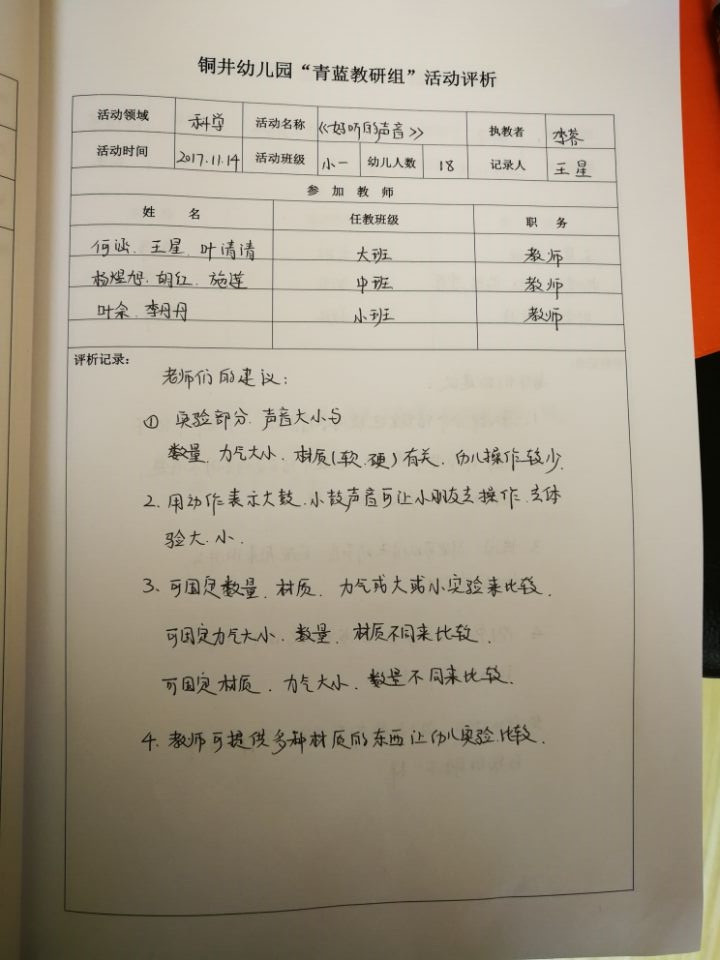 铜井幼儿园“青蓝教研组”活动评析
活动领域 科学 活动名称 《好听的声音》 执教者 李蓉
活动时间 2017.11.14 活动班级 小一 幼儿人数 18 记录人 王星
参加教师
姓名 任教班级 职务
何 王星、叶清清 大班 教师
杨煜旭、胡红、施莲 中班 教师
叶 李丹丹 小班 教师
评析记录:
老师们的建议:
① 实验部分、声音大小与
数量、力气大小、材质(软、硬)有关、幼儿操作较少.
2. 用动作表示大鼓、小鼓声音可让小朋友去操作、去体
验大、小.
3、可固定数量、材质、力气或大或小实验来比较.
可固定力气大小、数量、材质不同来比较.
可固定材质、力气大小、数量不同来比较.
4. 教师可提供多种材质的东西让幼儿实验、比较.